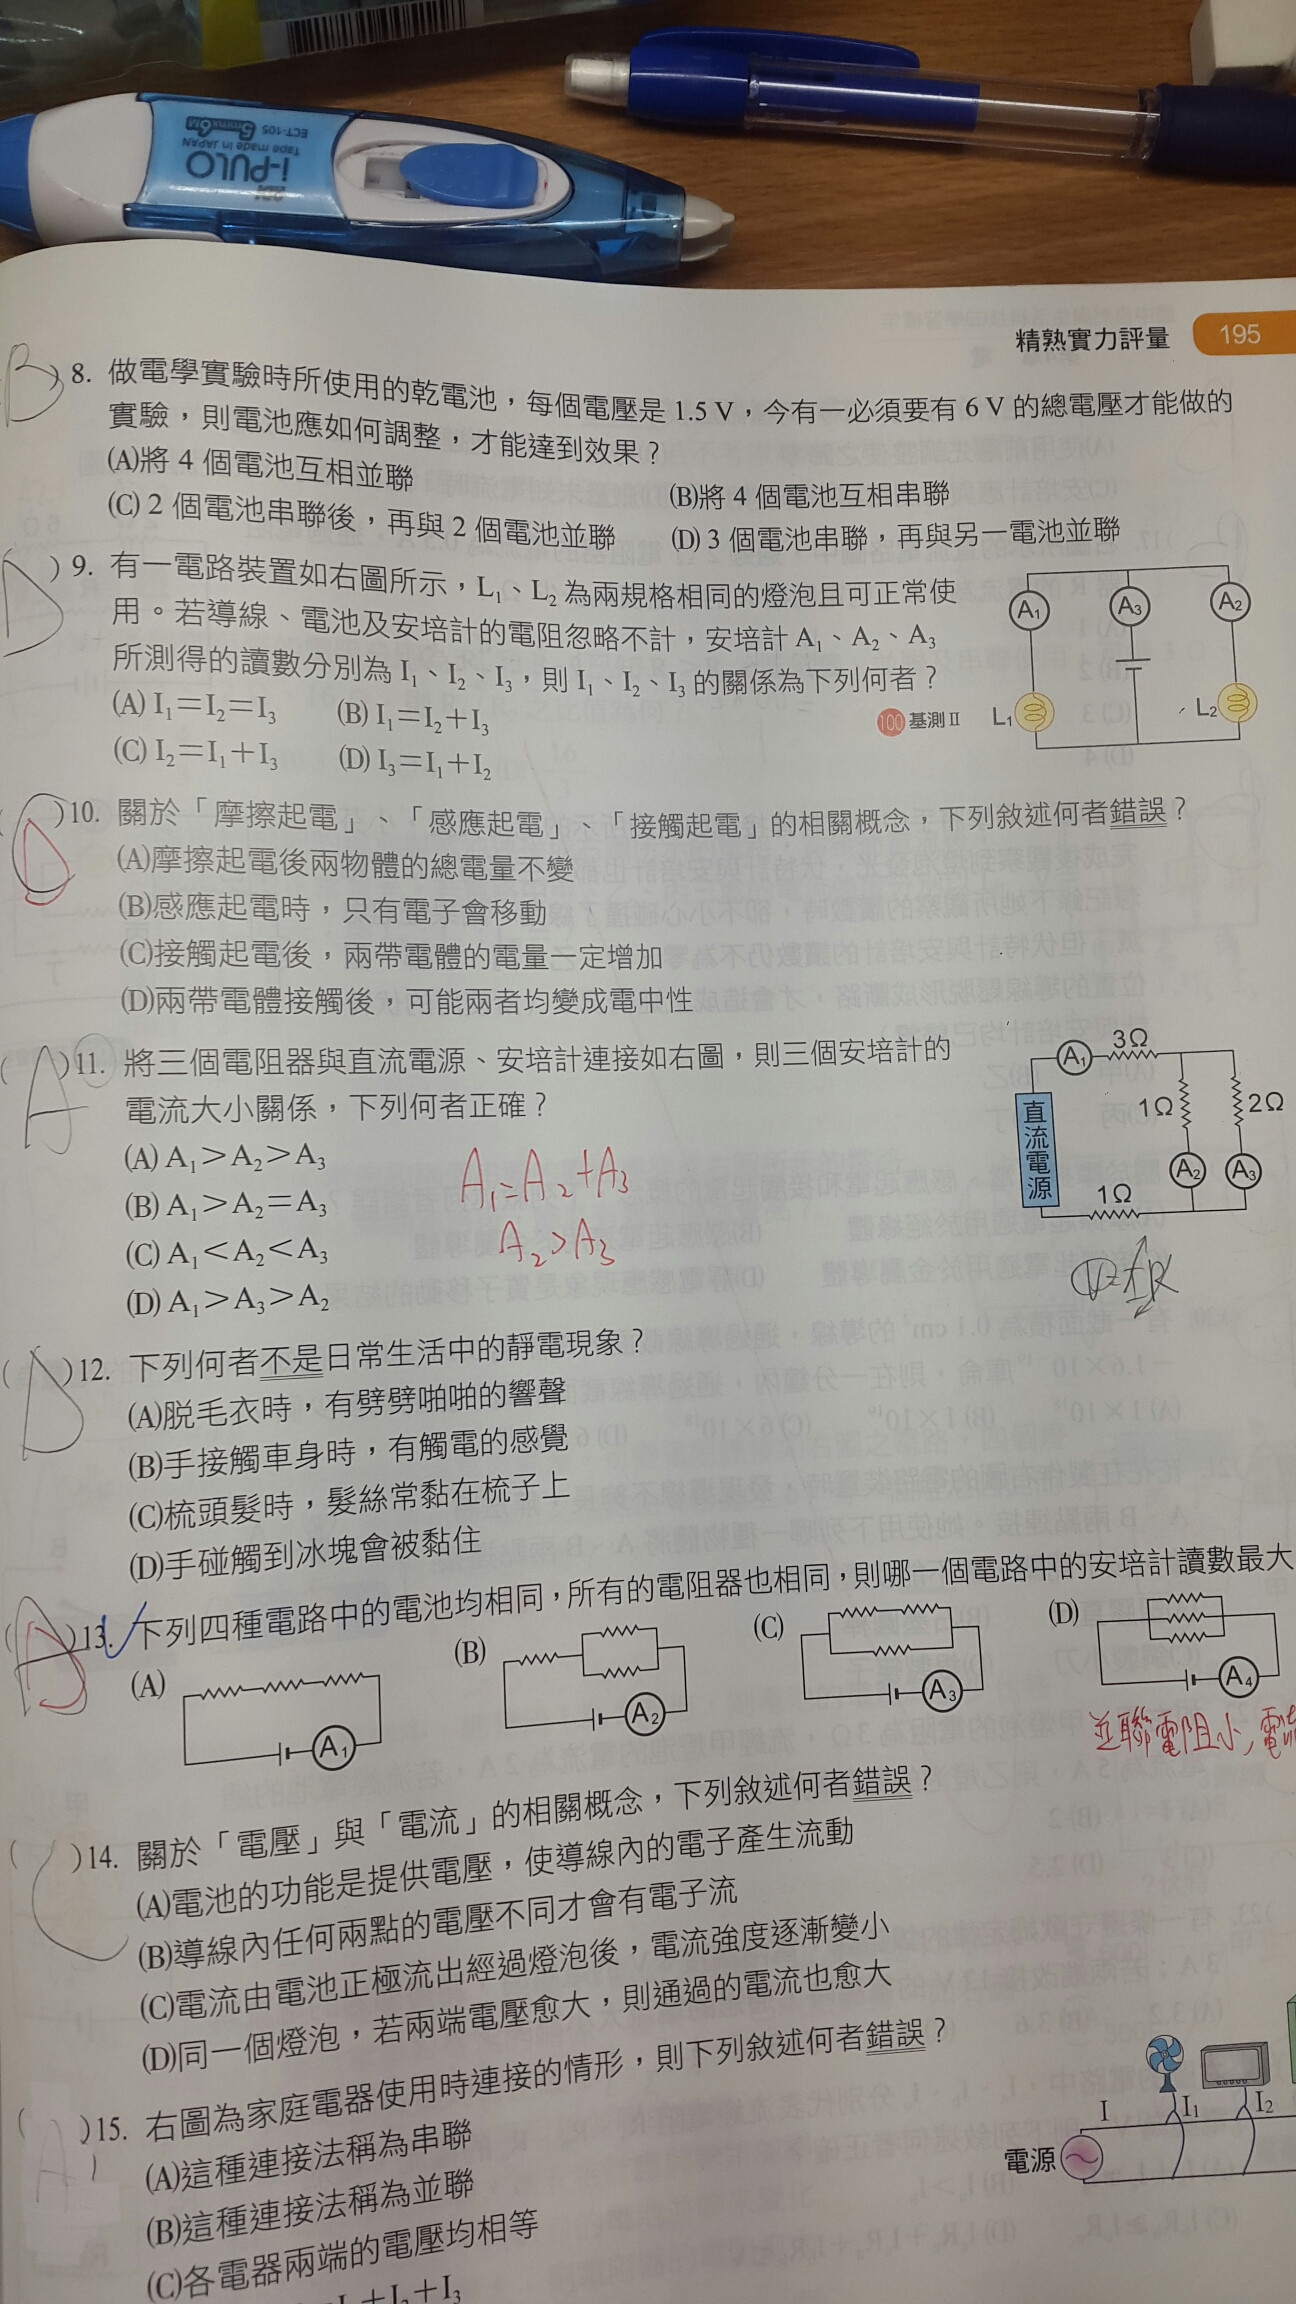 i-PULO
Tape made in JAPAN
ECT-105 5mm×6M
精熟實力評量 195
B )8. 做電學實驗時所使用的乾電池，每個電壓是 1.5 V，今有一必須要有 6 V 的總電壓才能做的
實驗，則電池應如何調整，才能達到效果？
(A)將 4 個電池互相並聯 (B)將 4 個電池互相串聯
(C) 2 個電池串聯後，再與 2 個電池並聯 (D) 3 個電池串聯，再與另一電池並聯
D )9. 有一電路裝置如右圖所示，L₁、L₂ 為兩規格相同的燈泡且可正常使
用。若導線、電池及安培計的電阻忽略不計，安培計 A₁、A₂、A₃
所測得的讀數分別為 I₁、I₂、I₃，則 I₁、I₂、I₃ 的關係為下列何者？
100 基測Ⅱ
(A) I₁＝I₂＝I₃ (B) I₁＝I₂＋I₃
(C) I₂＝I₁＋I₃ (D) I₃＝I₁＋I₂
A₁ A₃ A₂
L₁ L₂
( D )10. 關於「摩擦起電」、「感應起電」、「接觸起電」的相關概念，下列敘述何者錯誤？
(A)摩擦起電後兩物體的總電量不變
(B)感應起電時，只有電子會移動
(C)接觸起電後，兩帶電體的電量一定增加
(D)兩帶電體接觸後，可能兩者均變成電中性
( A )11. 將三個電阻器與直流電源、安培計連接如右圖，則三個安培計的
電流大小關係，下列何者正確？
(A) A₁＞A₂＞A₃
(B) A₁＞A₂＝A₃
(C) A₁＜A₂＜A₃
(D) A₁＞A₃＞A₂
A₁=A₂+A₃
A₂>A₃
A₁ 3Ω
1Ω 2Ω
直流電源
A₂ A₃
1Ω
V=IR
( D )12. 下列何者不是日常生活中的靜電現象？
(A)脱毛衣時，有劈劈啪啪的響聲
(B)手接觸車身時，有觸電的感覺
(C)梳頭髮時，髮絲常黏在梳子上
(D)手碰觸到冰塊會被黏住
( )13. 下列四種電路中的電池均相同，所有的電阻器也相同，則哪一個電路中的安培計讀數最大
(A) (B) (C) (D)
A₁ A₂ A₃ A₄
並聯電阻小，電
( C )14. 關於「電壓」與「電流」的相關概念，下列敘述何者錯誤？
(A)電池的功能是提供電壓，使導線內的電子產生流動
(B)導線內任何兩點的電壓不同才會有電子流
(C)電流由電池正極流出經過燈泡後，電流強度逐漸變小
(D)同一個燈泡，若兩端電壓愈大，則通過的電流也愈大
( A )15. 右圖為家庭電器使用時連接的情形，則下列敘述何者錯誤？
(A)這種連接法稱為串聯
(B)這種連接法稱為並聯
(C)各電器兩端的電壓均相等
＋I₂＋I₃
I I₁ I₂
電源